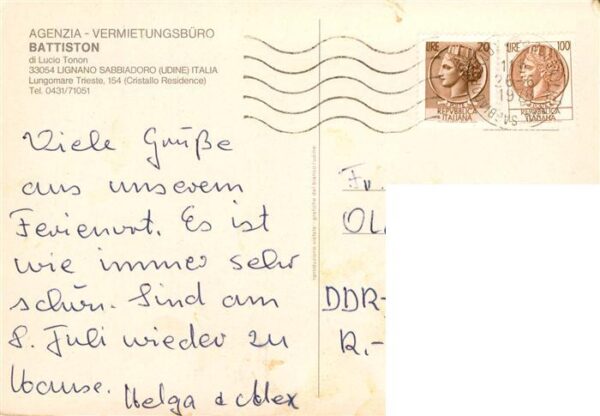 AGENZIA - VERMIETUNGSBÜRO
BATTISTON
di Lucio Tonon
33054 LIGNANO SABBIADORO (UDINE) ITALIA
Lungomare Trieste, 154 (Cristallo Residence)
Tel. 0431/71051
LIRE 20
REPVBBLICA
ITALIANA
LIRE 100
REPVBBLICA
ITALIANA
Viele Grüße
aus unserem
Ferienort. Es ist
wie immer sehr
schön. Sind am
8. Juli wieder zu
Hause. Helga & Alex
Fr.
OL
DDR-
R.-